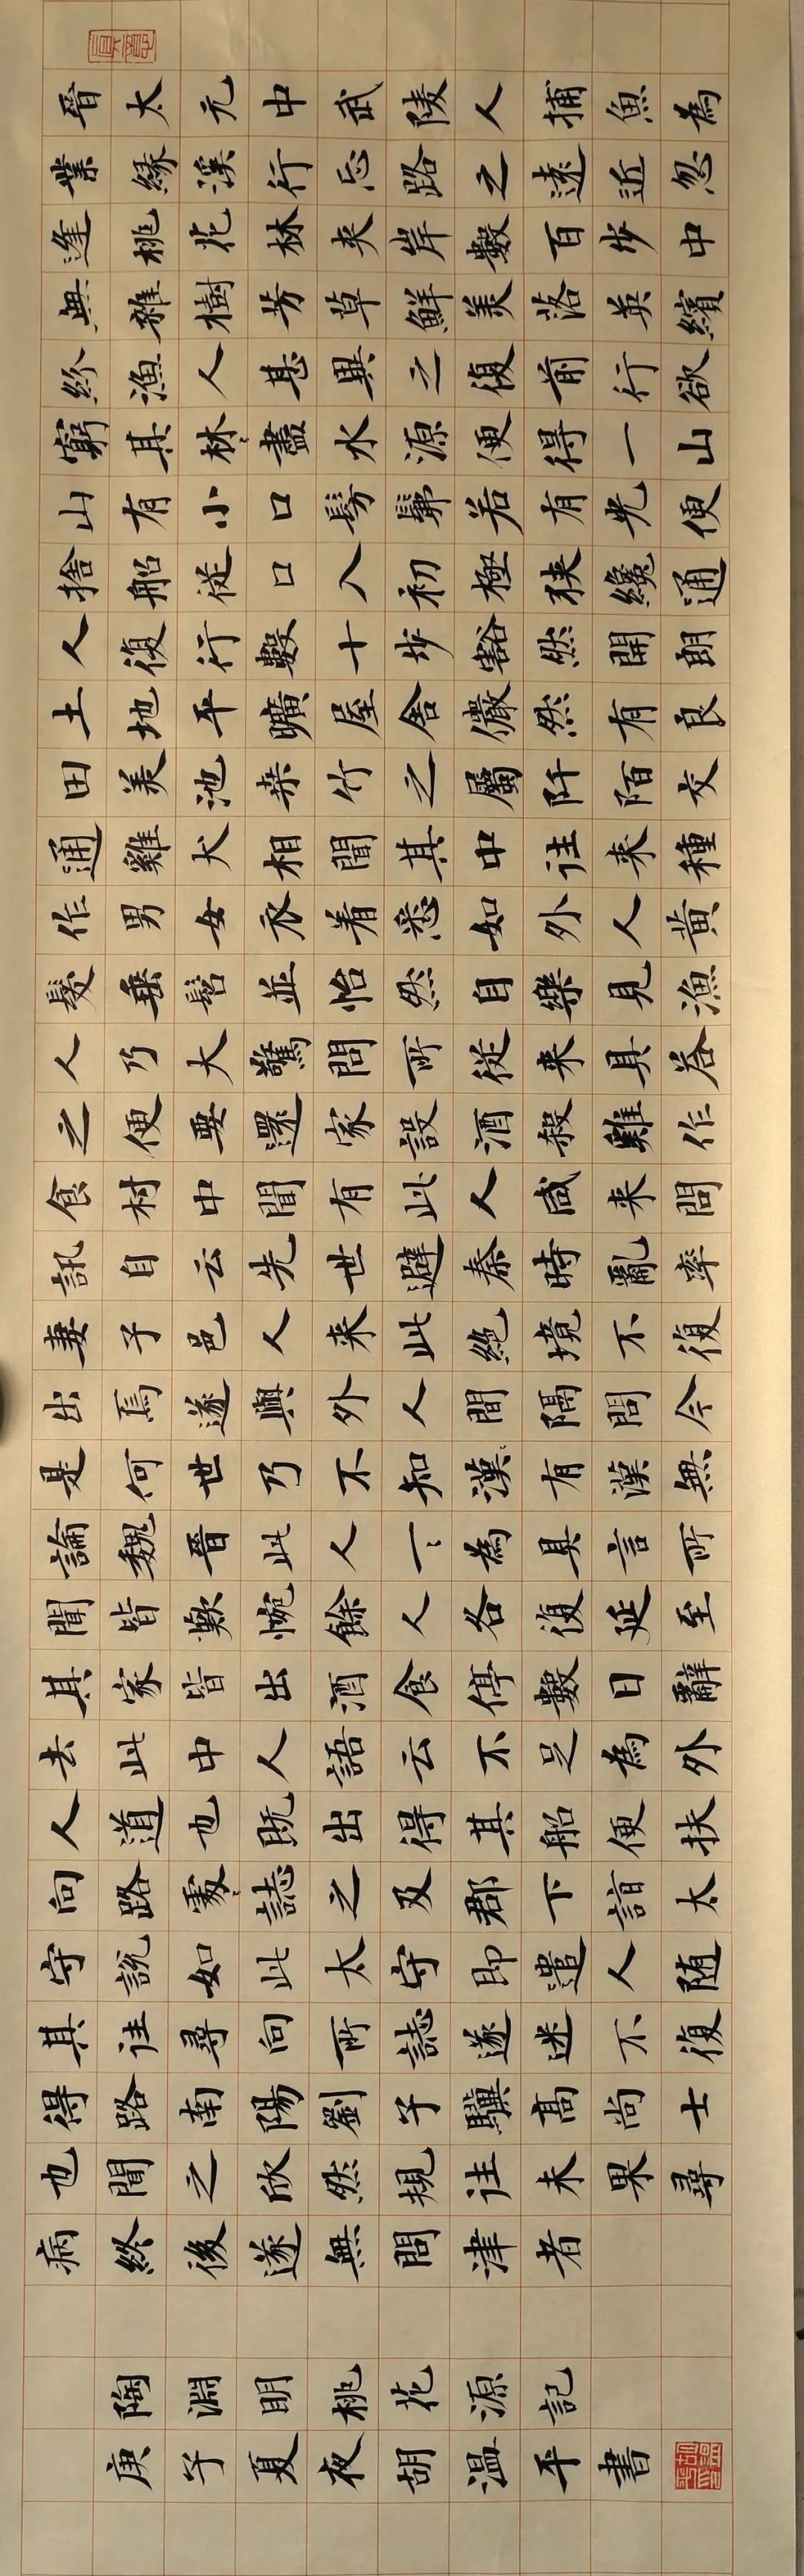 晉太元中武陵人捕魚為
業緣溪行忘路之遠近忽
逢桃花林夾岸數百步中
無雜樹芳草鮮美落英繽
紛漁人甚異之復前行欲
窮其林、盡水源便得一山
山有小口髣髴若有光便
捨船從口入初極狹纔通
人復行數十步豁然開朗
土地平曠屋舍儼然有良
田美池桑竹之屬阡陌交
通雞犬相聞其中往来種
作男女衣着悉如外人黃
髮垂髫並怡然自樂見漁
人乃大驚問所從来具答
之便要還家設酒殺雞作
食村中聞有此人咸来問
訊自云先世避秦時亂率
妻子邑人来此絕境不復
出焉遂與外人間隔問今
是何世乃不知漢、有漢無
論魏晉此人一、為具言所
聞皆歎惋餘人各復延至
其家皆出酒食停數日辭
去此中人語云不足為外
人道也既出得其船便扶
向路處、誌之及郡下詣太
守說如此太守即遣人随
其往尋向所誌遂迷不復
得路南陽劉子驥高尚士
也聞之欣然規往未果尋
病終後遂無問津者
陶淵明桃花源記
庚子夏夜胡温平書